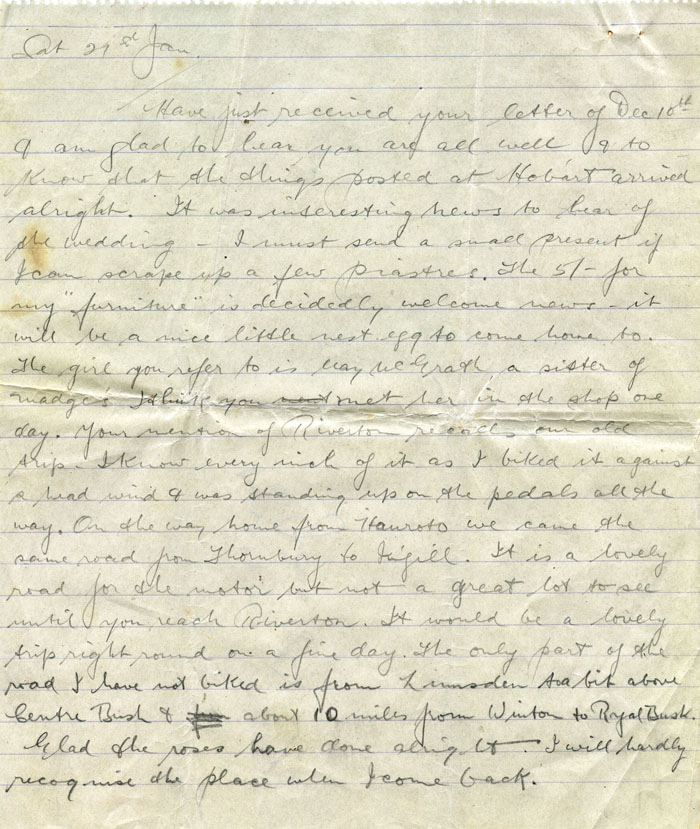 Sat 21st Jan.
Have just received your letter of Dec 10th
& am glad to hear you are all well & to
know that the things posted at Hobart arrived
alright. It was interesting news to hear of
the wedding – I must send a small present if
I can scrape up a few piastres. The 5/- for
my "furniture" is decidedly welcome news – it
will be a nice little nest egg to come home to.
The girl you refer to is May McGrath a sister of
Madge's I think you met her in the shop one
day. Your mention of Riverton recalls our old
trip. I know every inch of it as I biked it against
a head wind & was standing up on the pedals all the
way. On the way home from Hauroto we came the
same road from Thornbury to In'gill. It is a lovely
road for the motor but not a great lot to see
until you reach Riverton. It would be a lovely
trip right round on a fine day. The only part of the
road I have not biked is from Lumsden to a bit above
Centre Bush & about 10 miles from Winton to Ryal Bush.
Glad the roses have done alright. I will hardly
recognise the place when I come back.